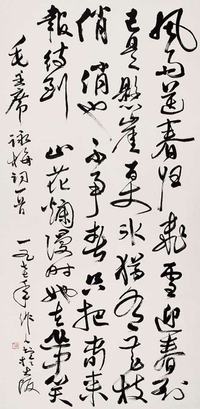 風雨送春归飛雪迎春到
已是懸崖百丈冰猶有花枝
俏俏也不争春只把春来
報待到山花爛漫時她在叢中笑
毛主席詠梅詞一首
一九七七年作